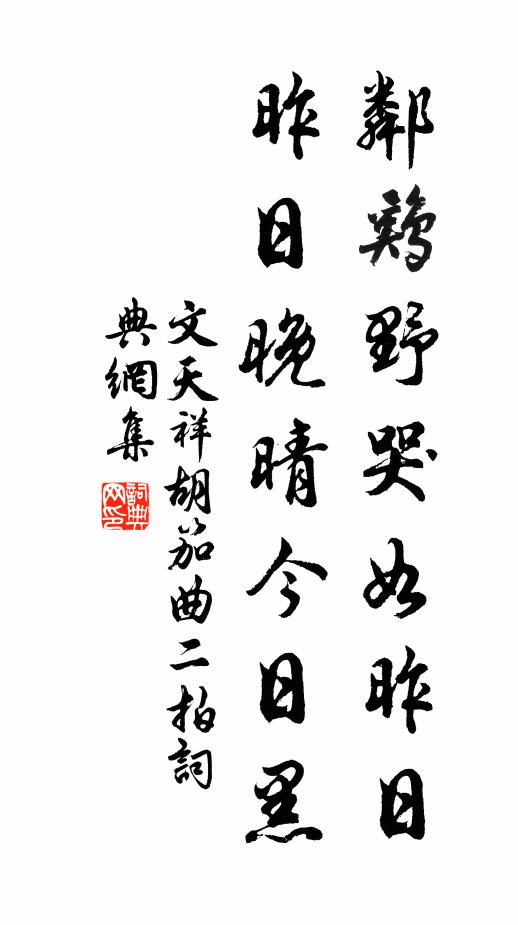 鄰鷄野哭如昨日
昨日晚晴今日黑
文天祥胡笳曲二拍詞
典網集
詞典網印